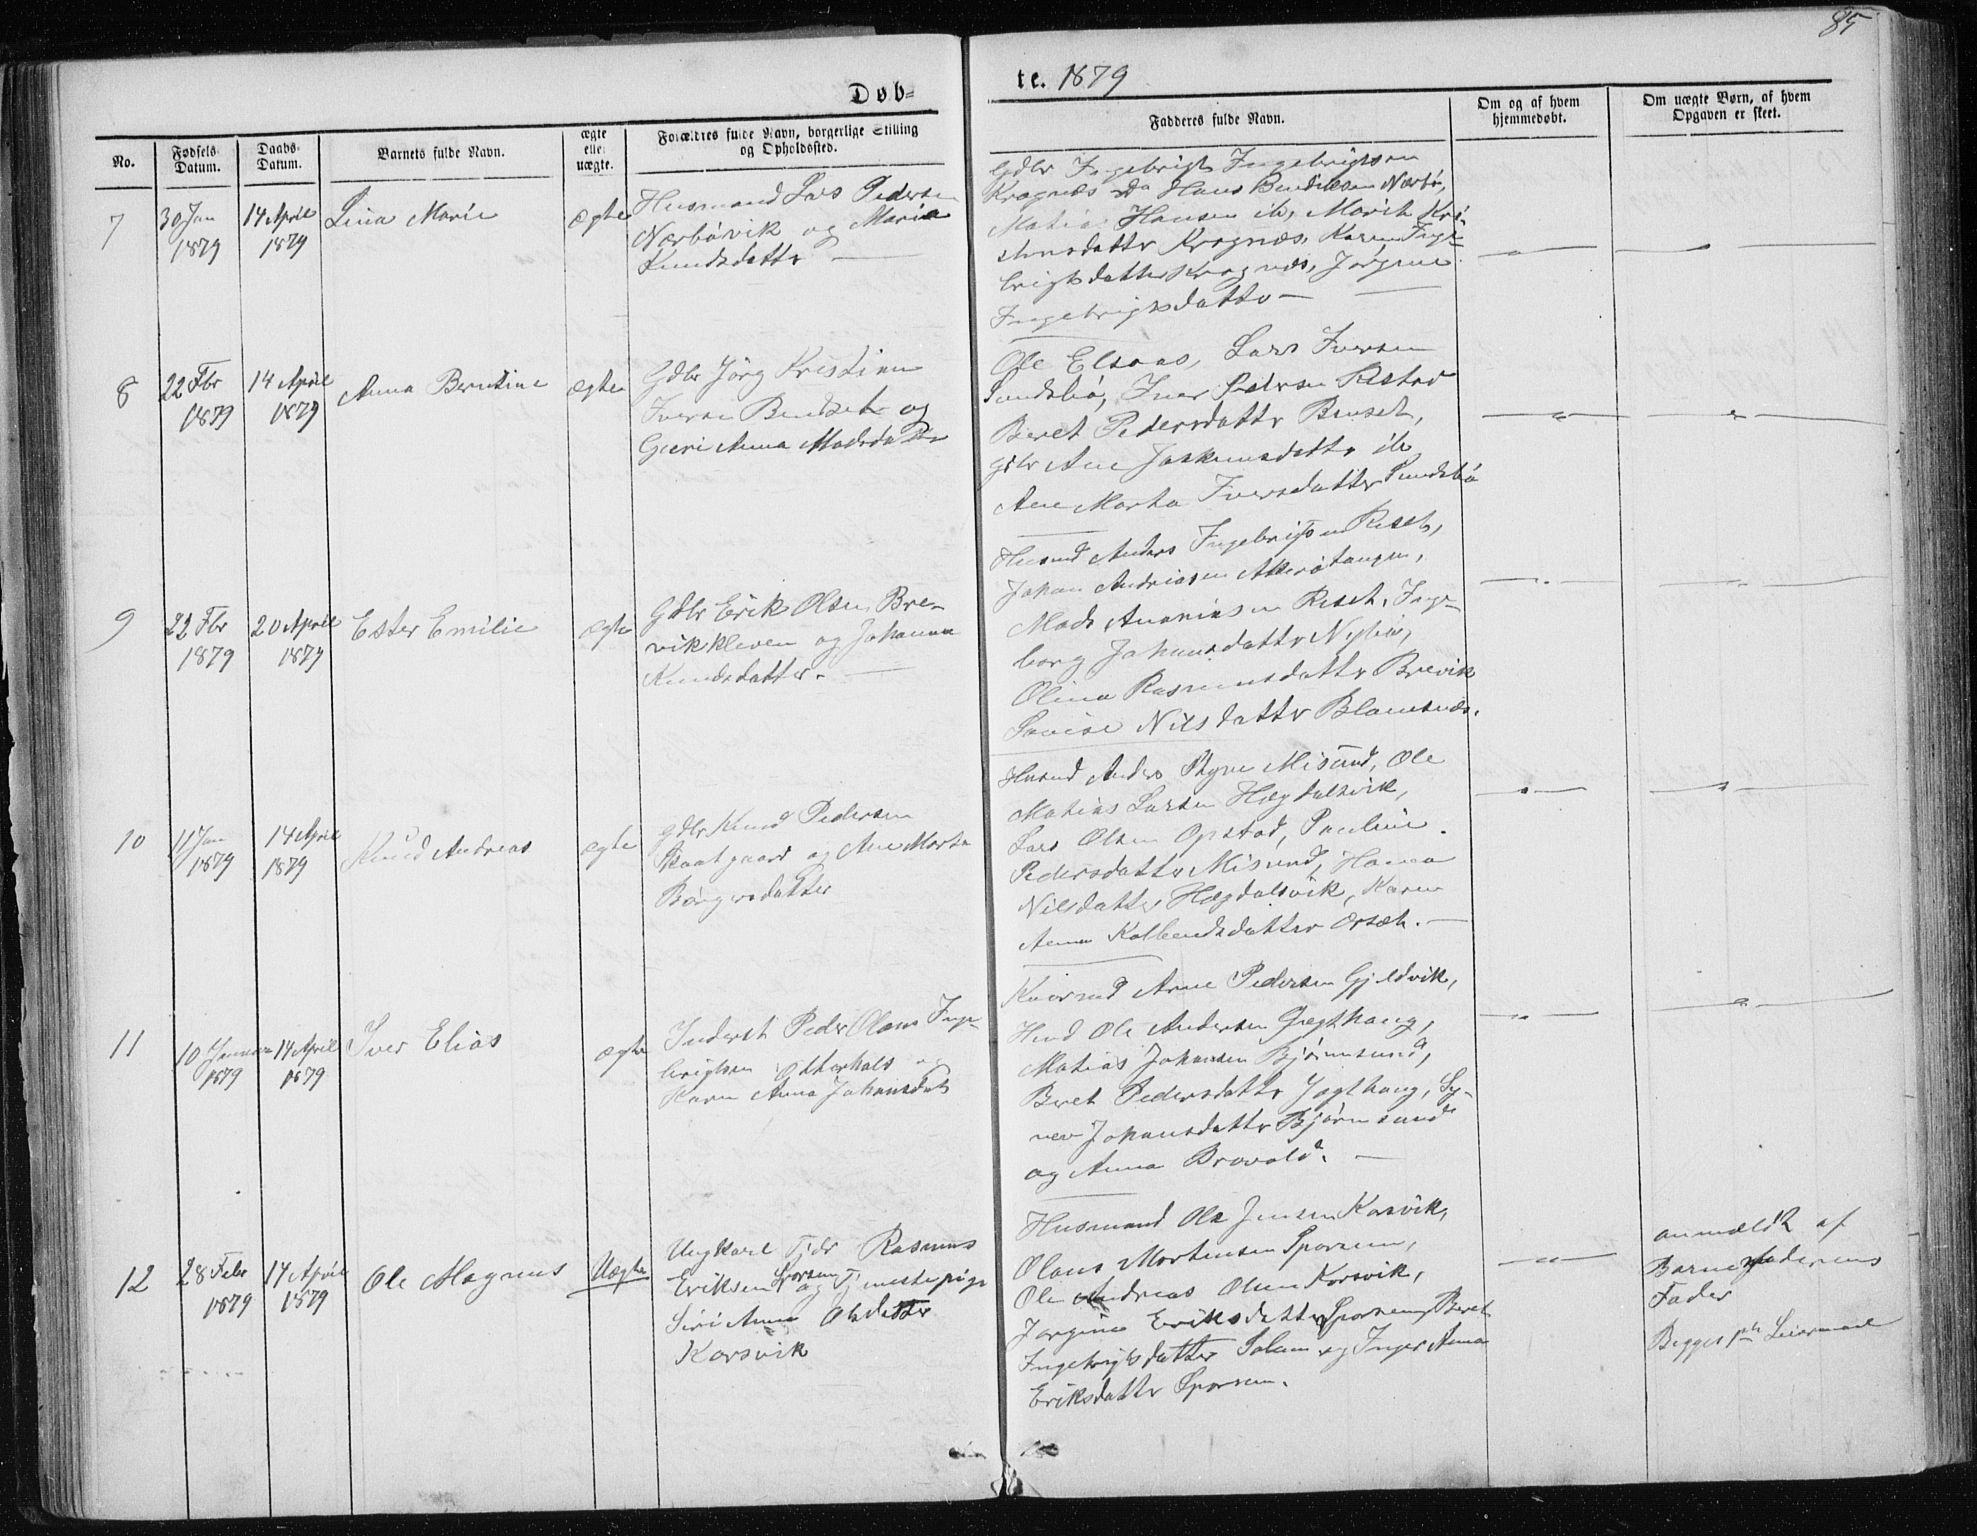 85
Døb=
te. 1879
No.
Fødsels
Datum.
Daabs
Datum.
Barnets fulde Navn.
ægte
eller
uægte.
Forældres fulde Navn, borgerlige Stilling
og Opholdssted.
Fadderes fulde Navn.
Om og af hvem
hjemmedøbt.
Om uægte Børn, af hvem
Opgaven er skeet.
7
30 Jan
1879
14 April
1879
Lina Marie
ægte
Husmand Lars Pedersen
Nærbövik og Maria
Knudsdatter —
Gdbr Ingebrigt Ingebrigtsen
Kragnæs Do Hans Bendiksen Nærbö,
Matias Hansen ib, Marit Kri-
stensdattr Kragnæs, Karen Inge-
brigtsdatter Kragnæs, Jörgine
Ingebrigtsdattr —
8
22 Fbr
1879
14 April
1879
Anna Berntine
ægte
Gdbr Jörg Kristian
Iversen Bendset og
Guri Anna Madsdatter
Ole Elsaas, Lars Iversen
Sundsbö, Iver Pedersen Ristad
Beret Pedersdattr Bruset,
Gdbr Ane Joakimsdattr ib
Ane Marta Iversdatter Sundsbö
9
22 Fbr
1879
20 April
1879
Ester Emilie
ægte
Gdbr Erik Olsen Bre-
vikkleven og Johanna
Knudsdatter. —
Husmd Anders Ingebrigtsen Riset,
Johan Andreasen Akerötangen,
Mads Ananiasen Riset, Inge-
borg Johansdattr Nybö,
Olina Rasmusdattr Brevik
Lovise Nilsdattr Blamsnæs.
10
11 Jan
1879
14 April
1879
Knud Andreas
ægte
Gdbr Knud Pedersen
Skaatgaard og Ane Marta
Börgesdatter
Husmd Anders Myren Misund, Ole
Matias Larsen Hægdalsvik,
Lars Olsen Opstad, Pauline
Pedersdattr Misund, Hanna
Nilsdatter Hægdalsvik, Karen
Anna Kolbendsdatter Orsæt. —
11
10 Januar
1879
14 April
1879
Iver Elias
ægte
Inderst Peder Olaus Inge-
brigtsen Otterhals og
Karen Anna Johansdat
Kaarmd Arne Pedersen Gjeldvik,
Hmd Ole Andersen Jægthaug,
Matias Johansen Björnsund,
Beret Pedersdattr Jægthaug, Sy-
nev Johansdattr Björnsund
og Anna Brovold. —
12
28 Febr
1879
14 April
1879
Ole Magnus
Uægte
Ungkarl Tjdr Rasmus
Eriksen Sporsem
og Tjenestepige
Siri Anna Olsdatter
Korsvik
Husmand Ole Jensen Korsvik,
Olaus Mortensen Sporsem,
Ole Andreas Olsen Korsvik,
Jörgine Eriksdatter Sporsem, Beret
Ingebrigtsdatter Solem og Inger Anna
Eriksdattr Sporsem.
anmældt af
Barnefaderens
Fader
Begges 1ste Leiermaal